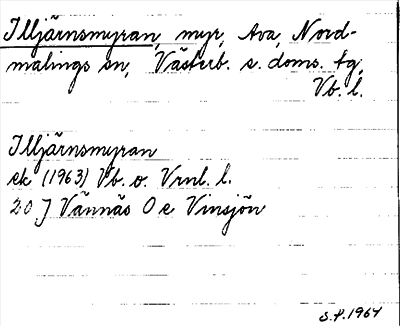 Illjärnsmyran, myr, Ava, Nord-
malings sn, Västerb. s. doms. tg,
Vb. l.
Illjärnsmyran
ek (1963) Vb. o. Vrnl. l.
20 J Vännäs O e Vinsjön
S.P. 1964